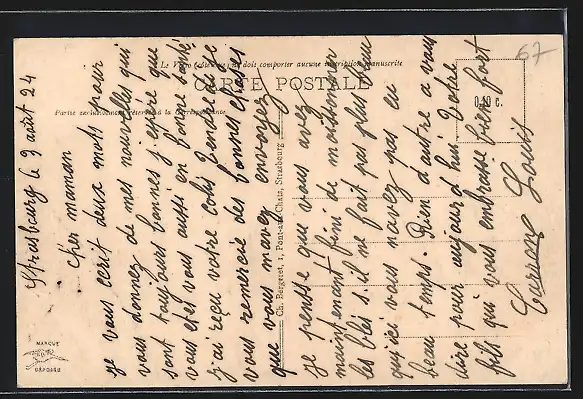 Strasbourg le 9 août 24
Cher maman
je vous ecrit deux mots pour
vous donnez de mes nouvelles qui
sont toujours bonnes j'espère que
vous etes vous aussi en bonne santé
J'ai reçu votre colis Jeudi je
vous remercie des bonnes choses
que vous m'avez envoyez
je pense que vous avez
maintenant fini de moissonner
les blés s'il ne fait pas plus beau
qu'ici vous n'avez pas eu
beau temps. Rien d'autre a vous
dire pour aujourd'hui Votre
fils qui vous embrasse bien fort
Louis
67
Le Verso doit comporter aucune inscription manuscrite
CARTE POSTALE
Partie exclusivement réservée à la Correspondance
0,15 c.
Ch. Bergeret, 1, Pont-aux-Chats, Strasbourg
MARQUE
DÉPOSÉE